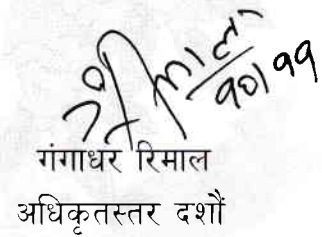 १०।११
गंगाधर रिमाल
अधिकृतस्तर दशौं